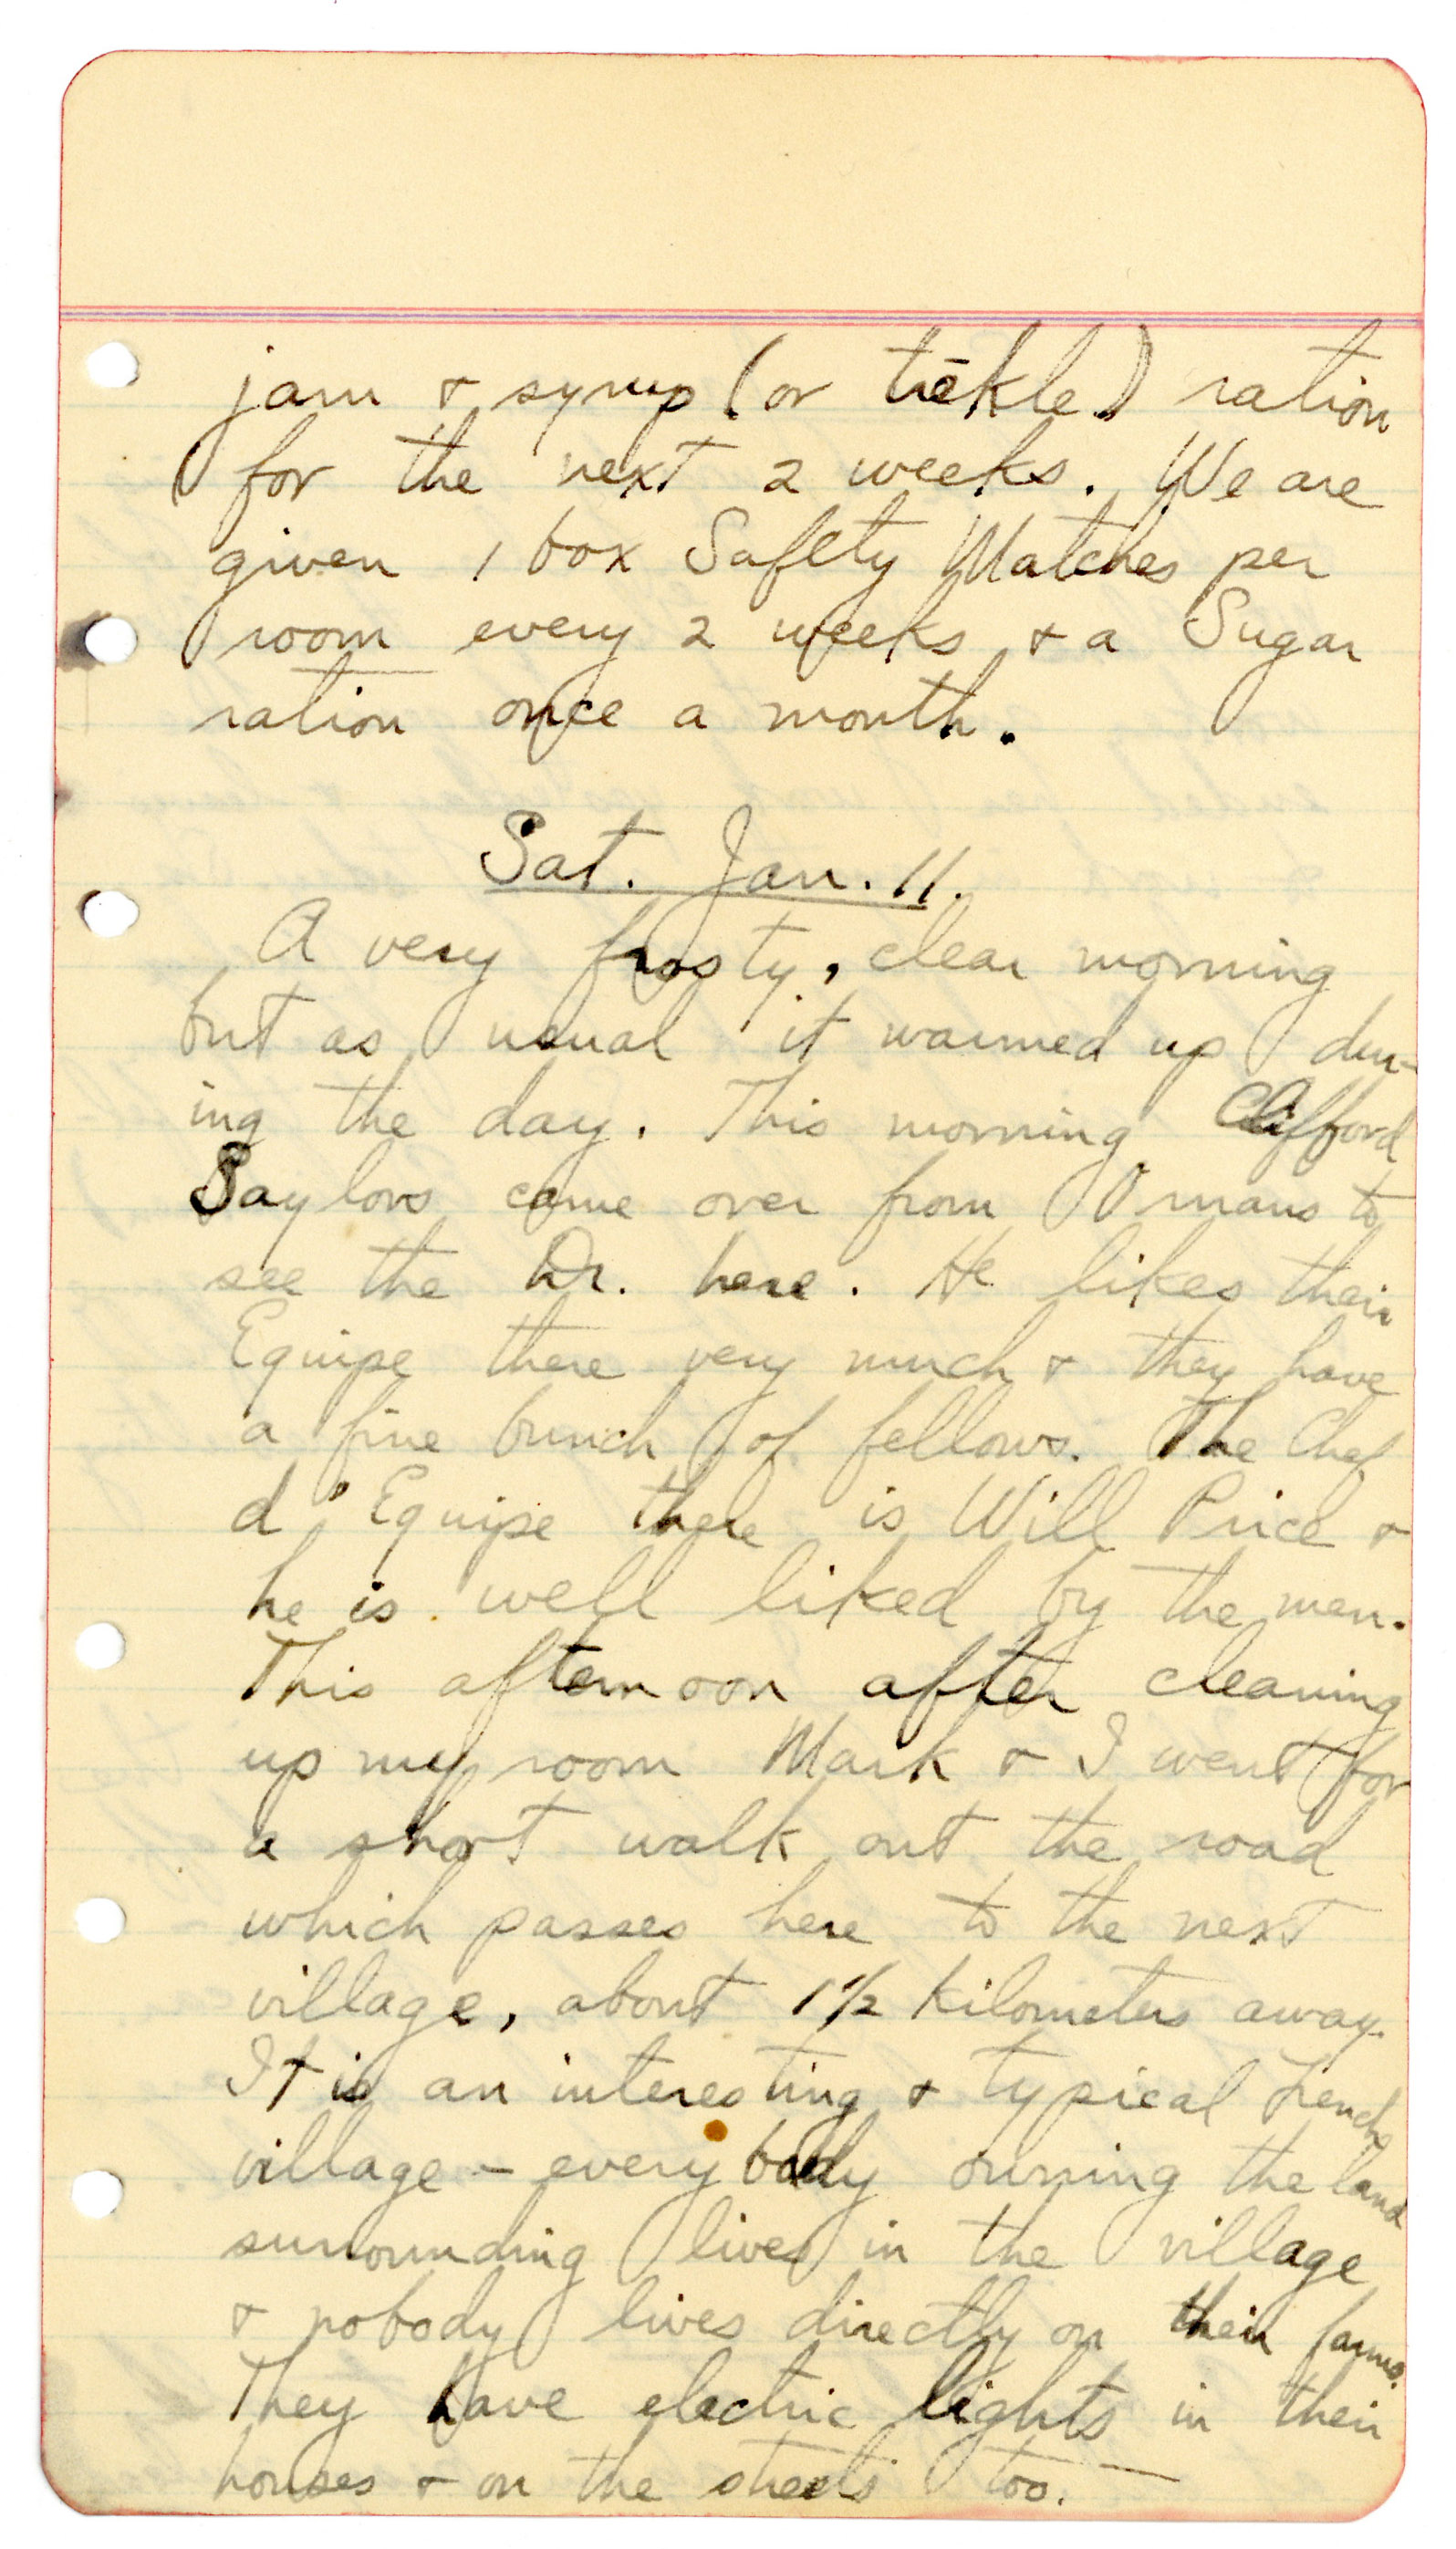 jam & syrup (or trēkle) ration
for the next 2 weeks. We are
given 1 box Safety Matches per
room every 2 weeks & a Sugar
ration once a month.
Sat. Jan. 11.
A very frosty, clear morning
but as usual it warmed up dur-
ing the day. This morning Clifford
Saylors came over from Ornans to
see the Dr. here. He likes their
Equipe there very much & they have
a fine bunch of fellows. The Chef
d'Equipe there is Will Price &
he is well liked by the men.
This afternoon after cleaning
up my room Mark & I went for
a short walk out the road
which passes here to the next
village, about 1 1/2 kilometers away.
It is an interesting & typical French
village - everybody owning the land
surrounding lives in the village
& nobody lives directly on their farms.
They have electric lights in their
houses & on the streets too. —